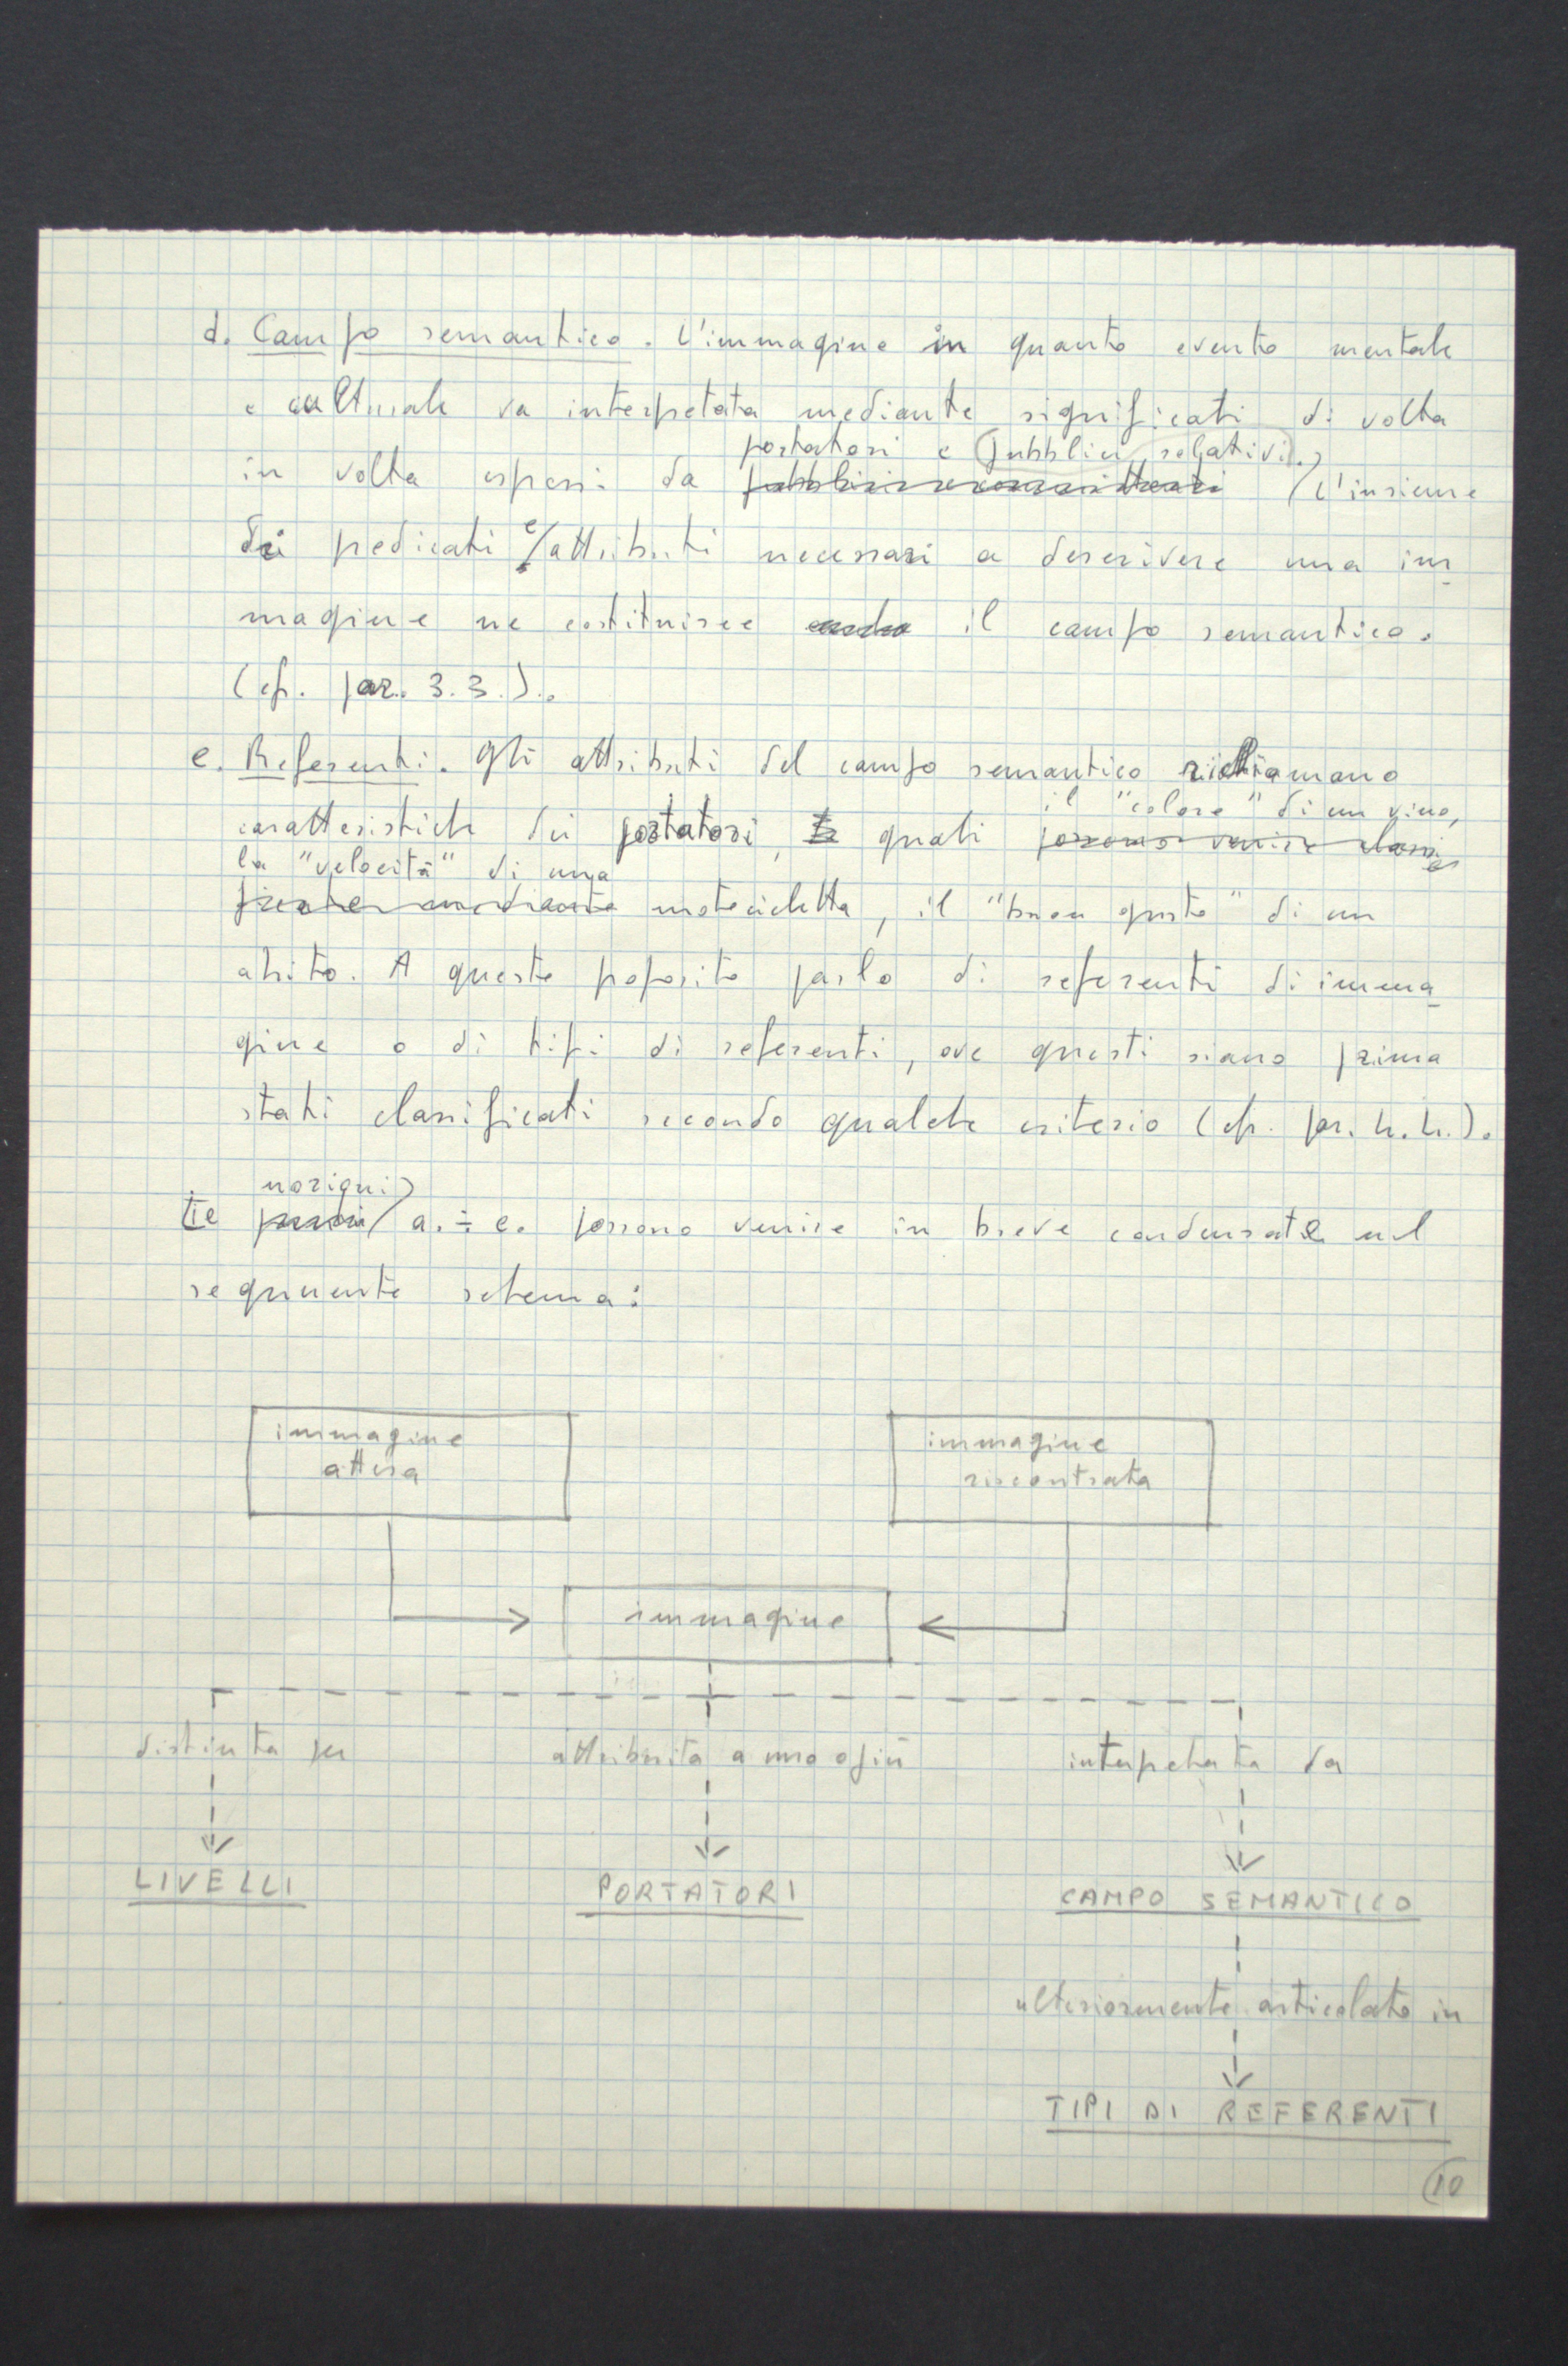 d. Campo semantico. L'immagine in quanto evento mentale
e culturale va interpretata mediante significati di volta
portatori e pubblici relativi.
in volta espressi da L'insieme
dei predicati e/attributi necessari a descrivere una im
magine ne costituisce il campo semantico.
(cfr. par. 3.3.).
e. Referenti. Gli attributi del campo semantico richiamano
il "colore" di un vino,
caratteristiche dei portatori, quali possono venire classi
la "velocità" di una
ficate mediante motocicletta, il "buon gusto" di un
abito. A questo proposito parlo di referenti di imma
gine o di tipi di referenti, ove questi siano prima
stati classificati secondo qualche criterio (cfr. par. 4.4.).
nozioni
Le a. ÷ e. possono venire in breve condensate nel
seguente schema:
immagine
attesa
immagine
riscontrata
immagine
distinta per
attribuita a uno o più
interpretata da
LIVELLI
PORTATORI
CAMPO SEMANTICO
ulteriormente articolato in
TIPI DI REFERENTI
10